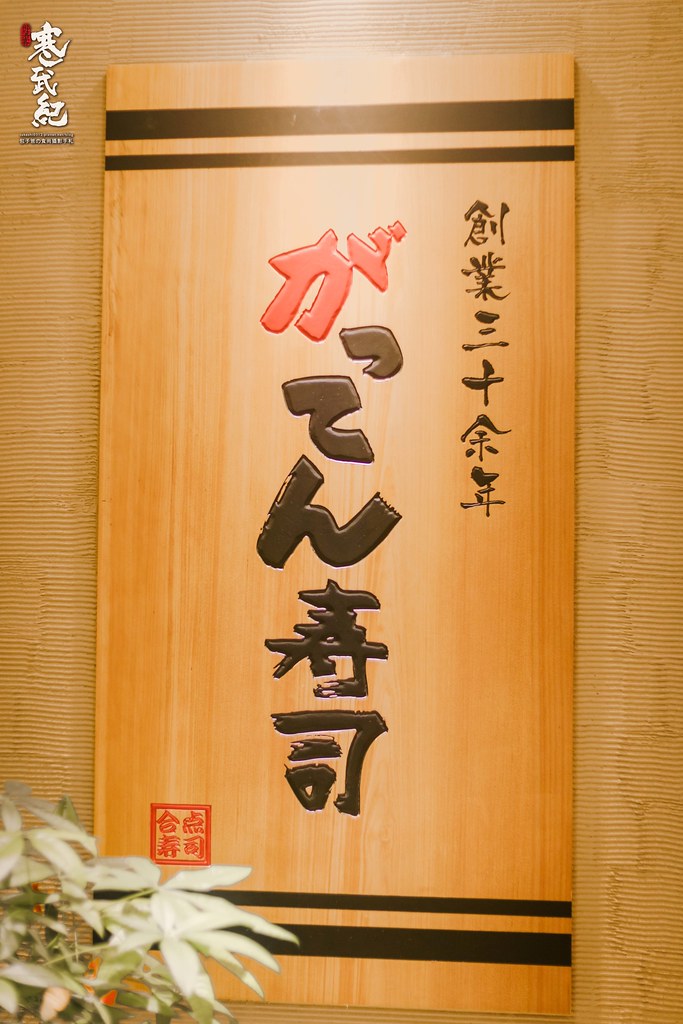 創業三十余年
がってん寿司
合点
寿司
寒武紀